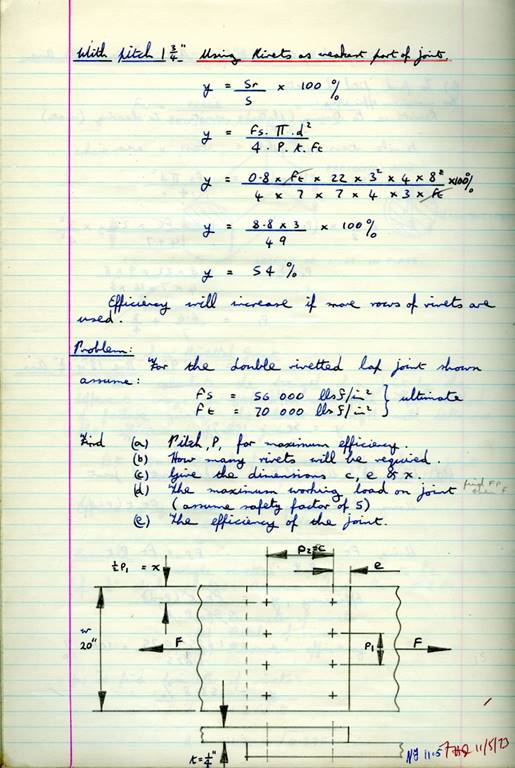 With pitch 1 3/4" Using Rivets as weakest part of joint.
y = Sr/S × 100 %
y = Fs. π. d² / 4. P. t. Ft
y = 0.8 × Ft × 22 × 3² × 4 × 8² / 4 × 7 × 7 × 4 × 3 × Ft × 100%
y = 8.8 × 3 / 49 × 100 %
y = 54 %
Efficiency will increase if more rows of rivets are
used.
Problem:
For the double rivetted lap joint shown
assume:
Fs = 56 000 lbsf/in² } ultimate
Ft = 70 000 lbsf/in² }
Find (a) Pitch, P, for maximum efficiency.
(b) How many rivets will be required.
(c) Give the dimensions c, e & x.
(d) The maximum working load on joint
(assume safety factor of 5)
(e) The efficiency of the joint.
P2=c
½P1 = x
e
w
20"
F
P1
F
t=¼"
11/5/73